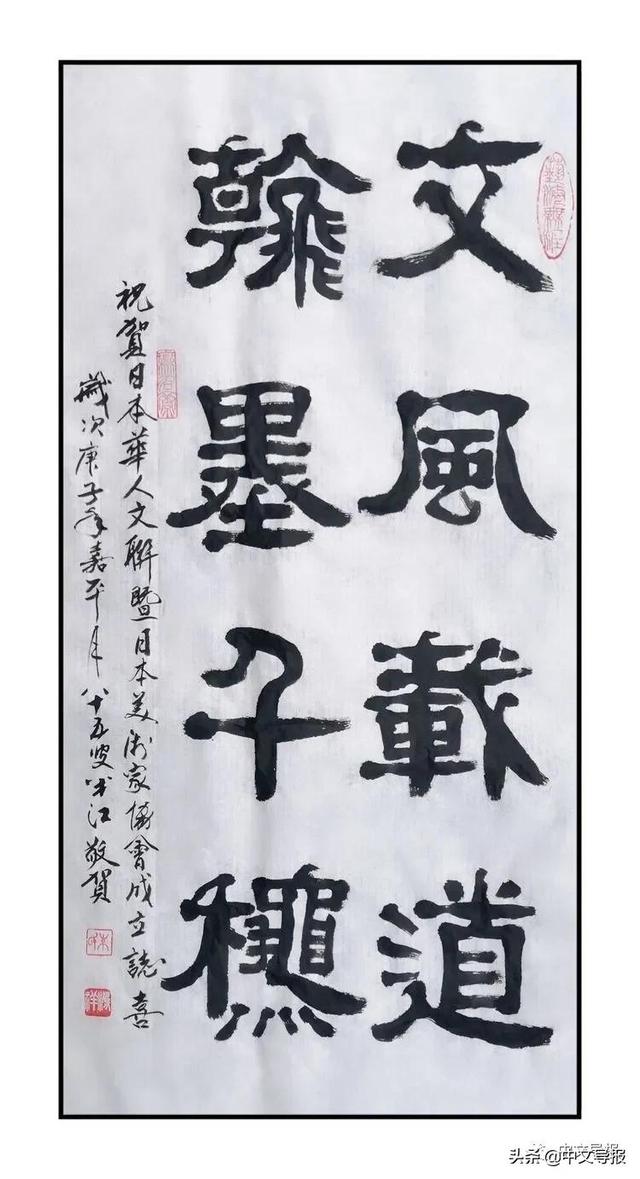 文風載道
翰墨千龝
祝賀日本華人文聯暨日本美術家協會成立誌喜
歲次庚子年嘉平月八十五叟江敬賀
中文导报
头条@中文导报